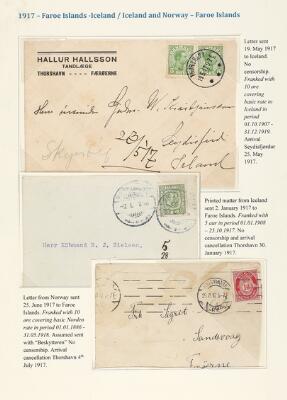 1917 – Faroe Islands -Iceland / Iceland and Norway – Faroe Islands
HALLUR HALLSSON
TANDLÆGE
THORSHAVN ---- FÆRØERNE
Letter sent
19. May 1917
to Iceland.
No
censorship.
Franked with
10 ore
covering
basic rate to
Iceland in
period
01.10.1907 -
31.12.1919.
Arrival
Seydisfjørdur
25. May
1917.
Seydisfjord
Island
Printed matter from Iceland
sent 2. January 1917 to
Faroe Islands. Franked with
3 aur in period 01.01.1908
– 23.10.1917. No
censorship and arrival
cancellation Thorshavn 30.
January 1917.
Herr Købmand R. J. Nielsen,
Letter from Norway sent
25. June 1917 to Faroe
Islands. Franked with 10
ore covering basic Nordea
rate in period 01.01.1886 –
31.05.1918. Assumed sent
with "Beskytteren" No
censorship. Arrival
cancellation Thorshavn 4th
July 1917.
Sandevaag
Færøerne